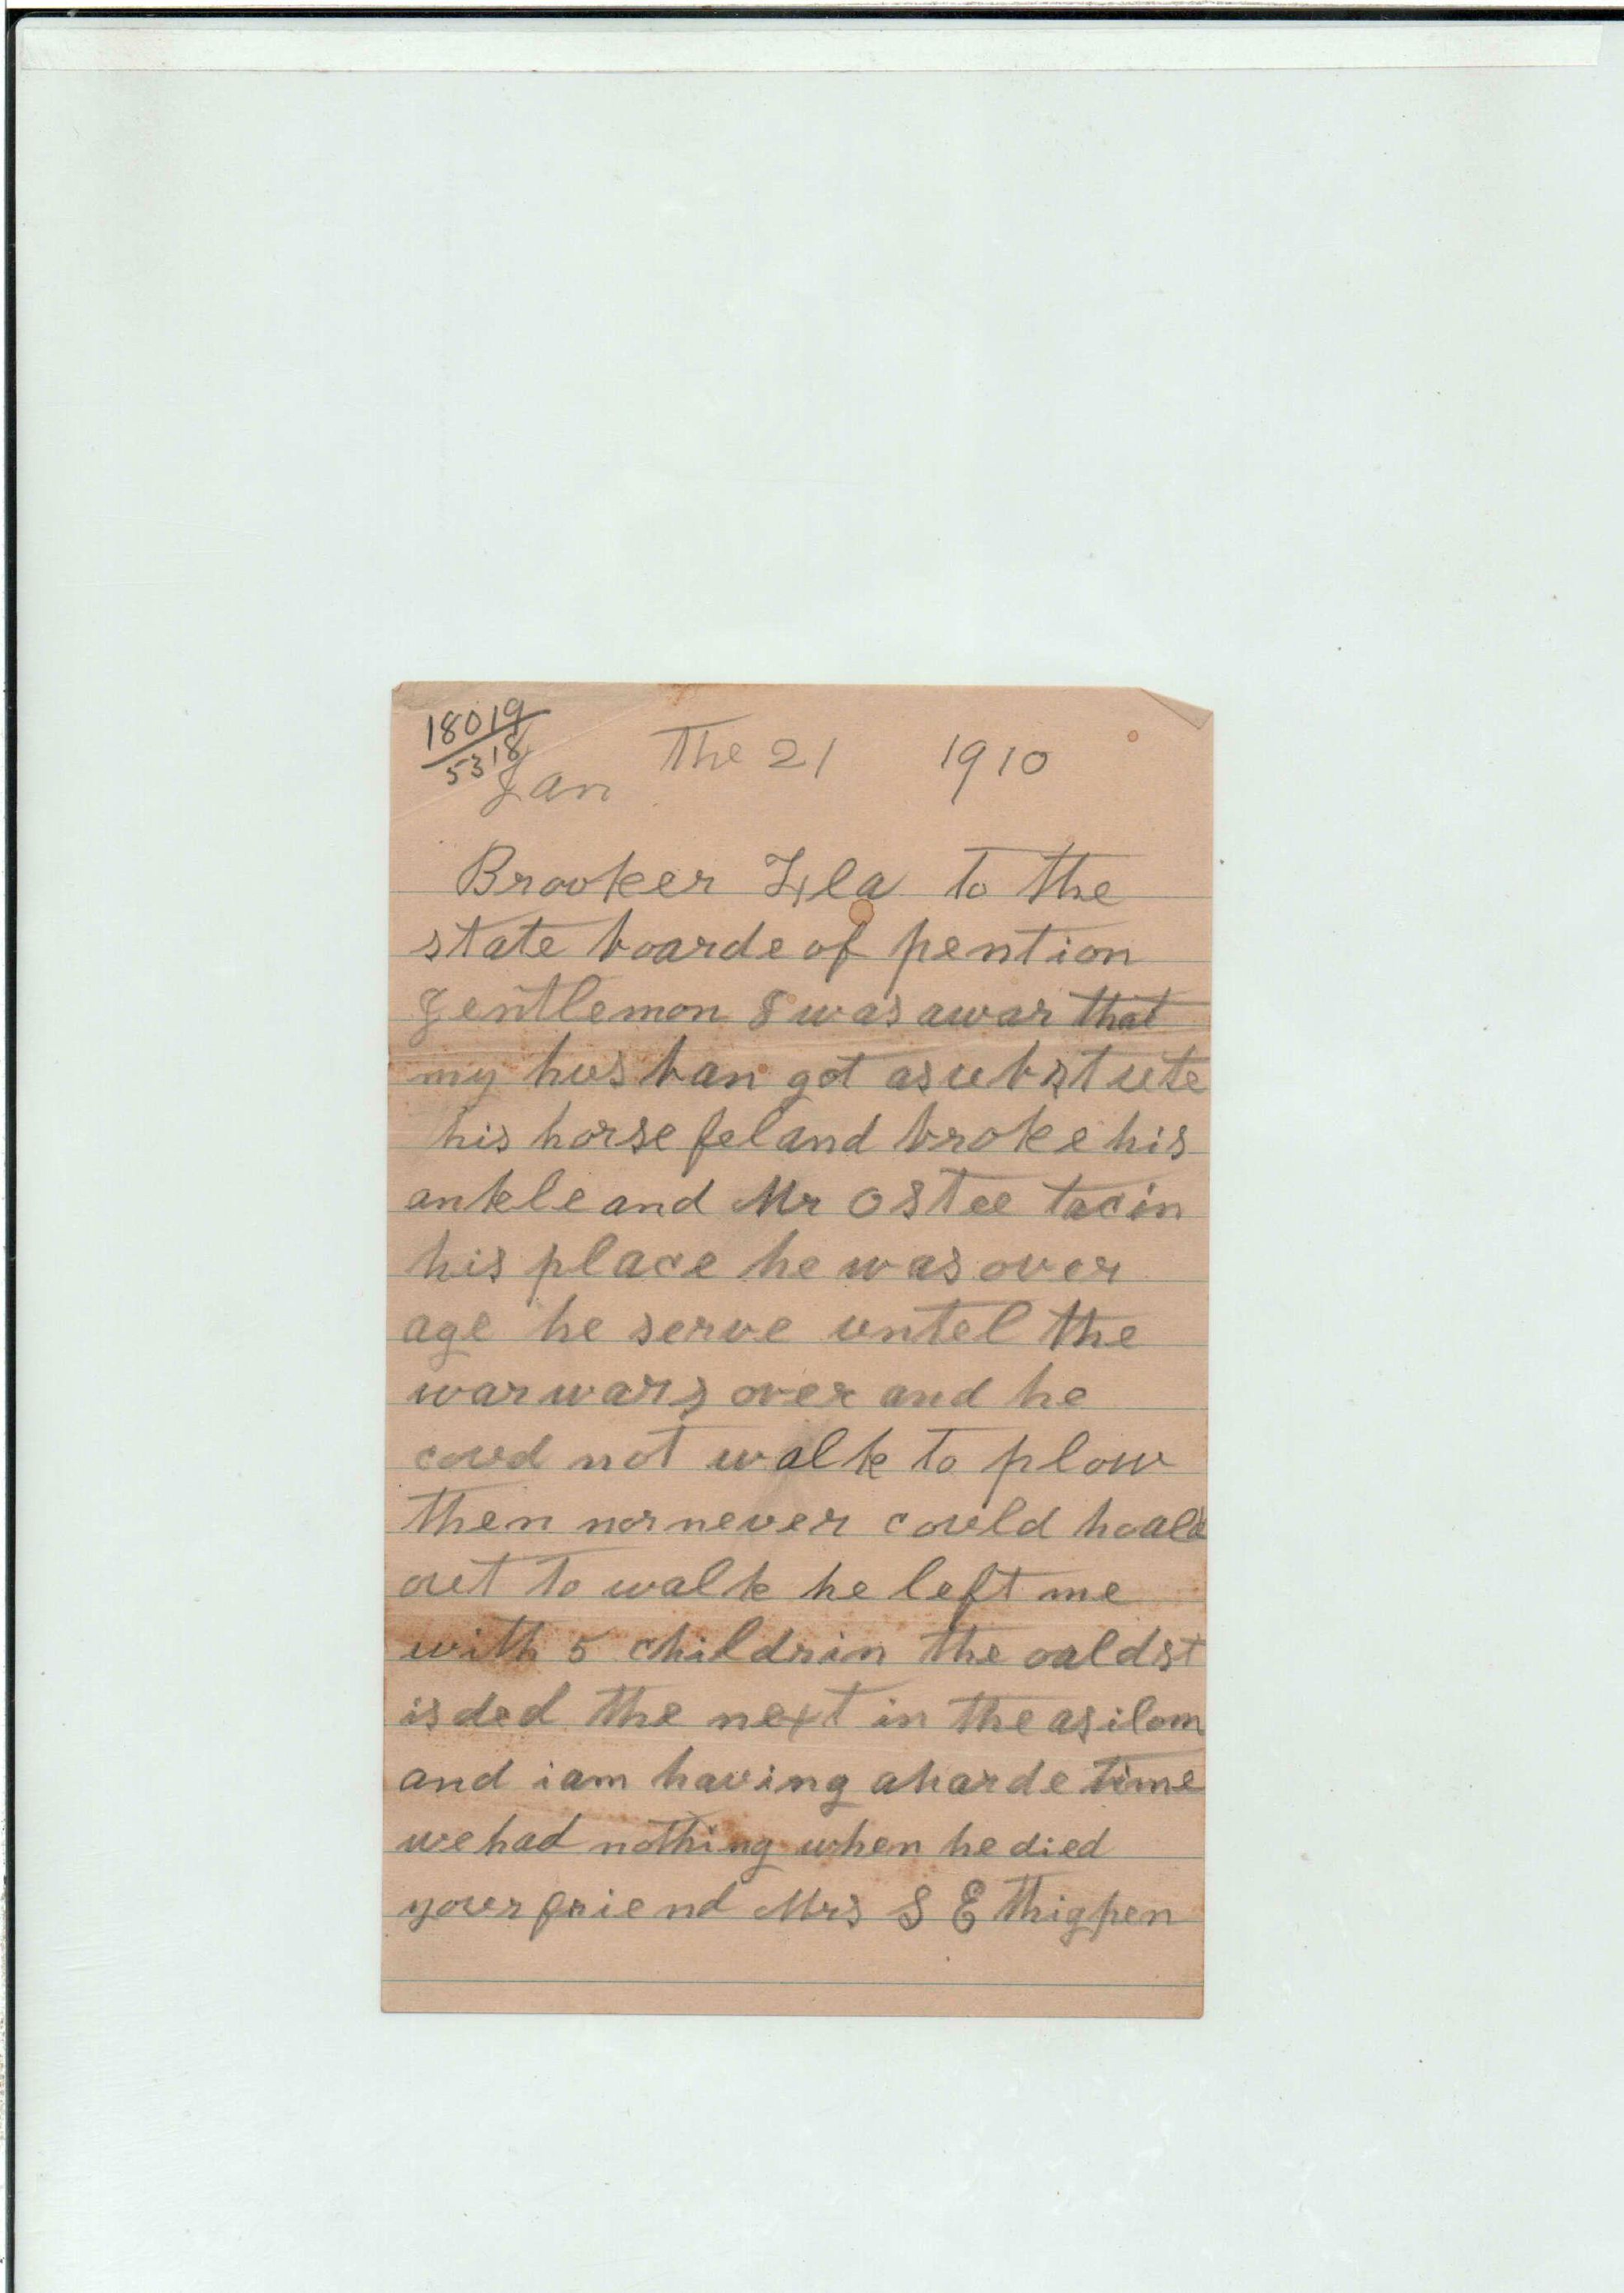 18019
5318
Jan The 21 1910
Brooker Fla to the
state boarde of pention
gentlemon I was awar that
my husban got a substute
his horse fel and broke his
ankle and Mr Ostee tac in
his place he was over
age he serve untel the
war wars over and he
coud not walk to plow
then nor never could hoald
out to walk he left me
with 5 childrin the oaldst
is ded the next in the asilom
and i am having a harde time
we had nothing when he died
your friend Mrs S E Thigpen